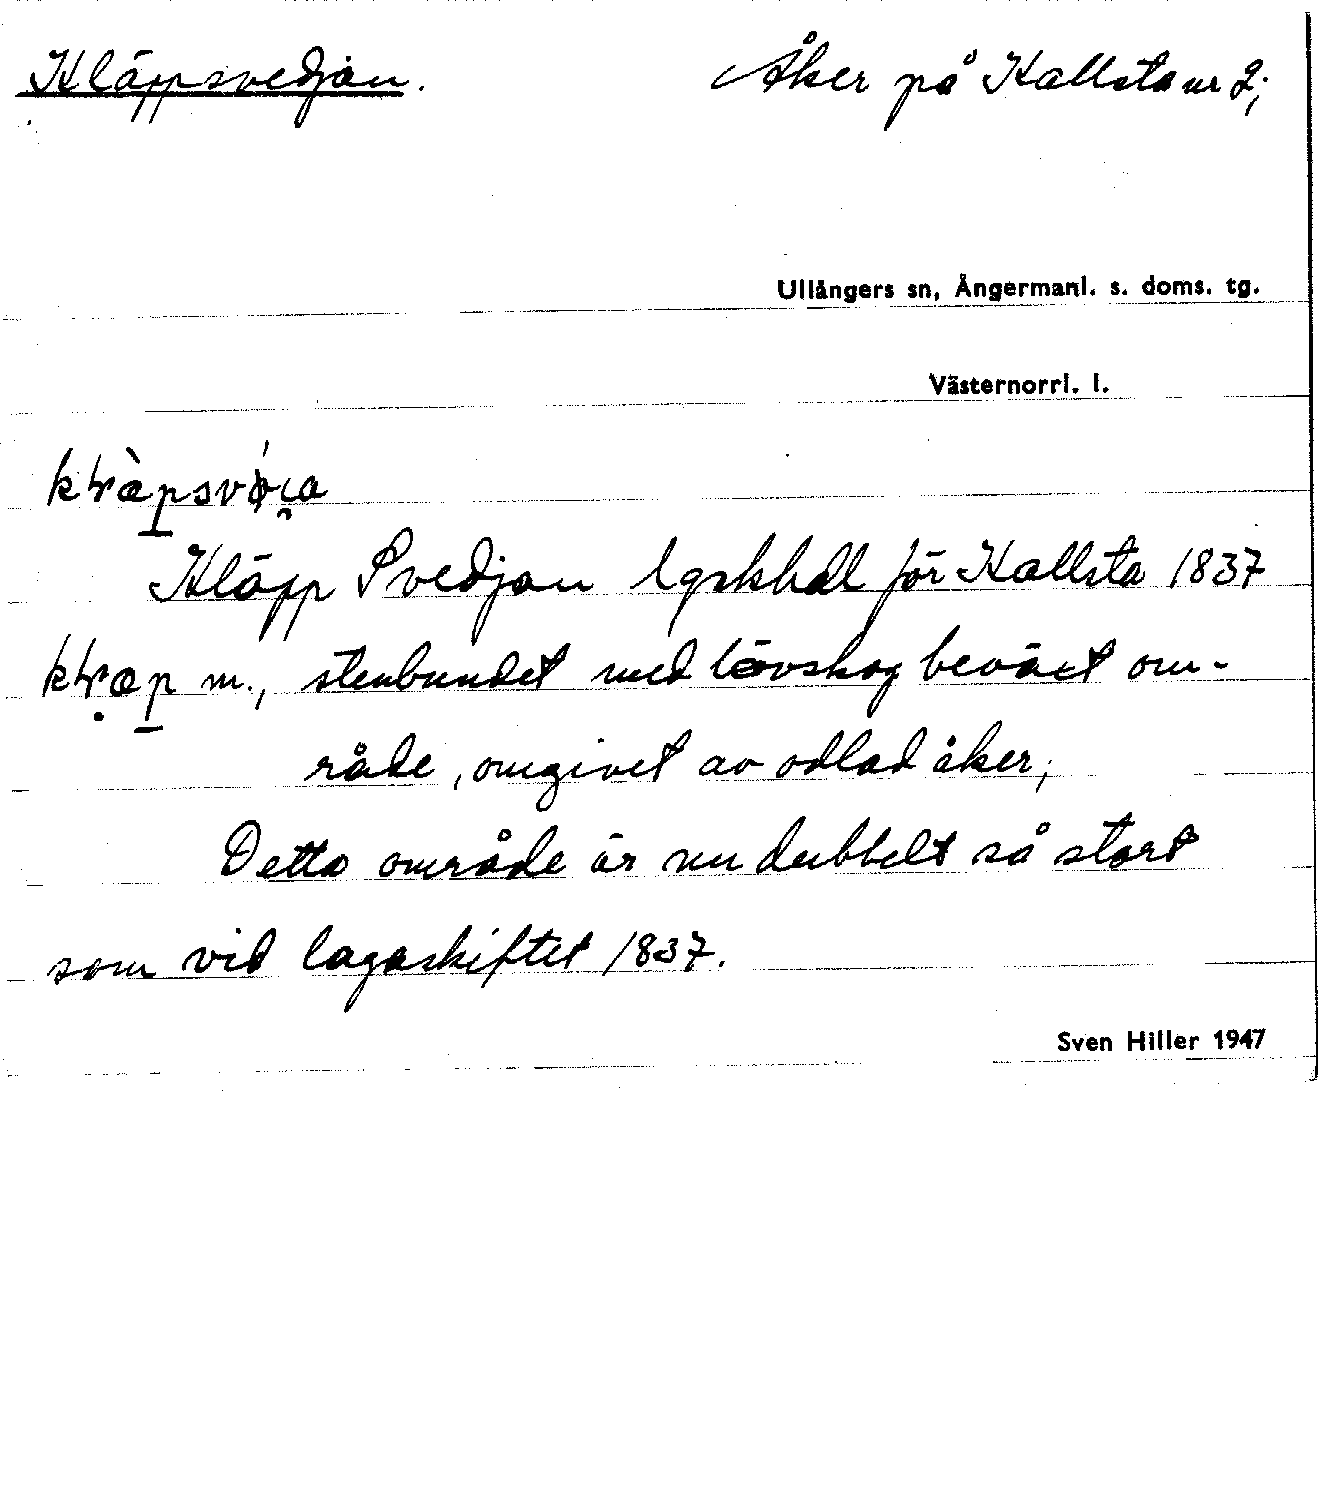 Kläppsvedjan.
Åker på Kallsta nr 2;
Ullångers sn, Ångermanl. s. doms. tg.
Västernorrl. l.
Kläpp Svedjan lgskhdl för Kallsta 1837
m., stenbundet med lövskog beväxt om-
råde, omgivet av odlad åker;
Detta område är nu dubbelt så stort
som vid lagaskiftet 1837.
Sven Hiller 1947